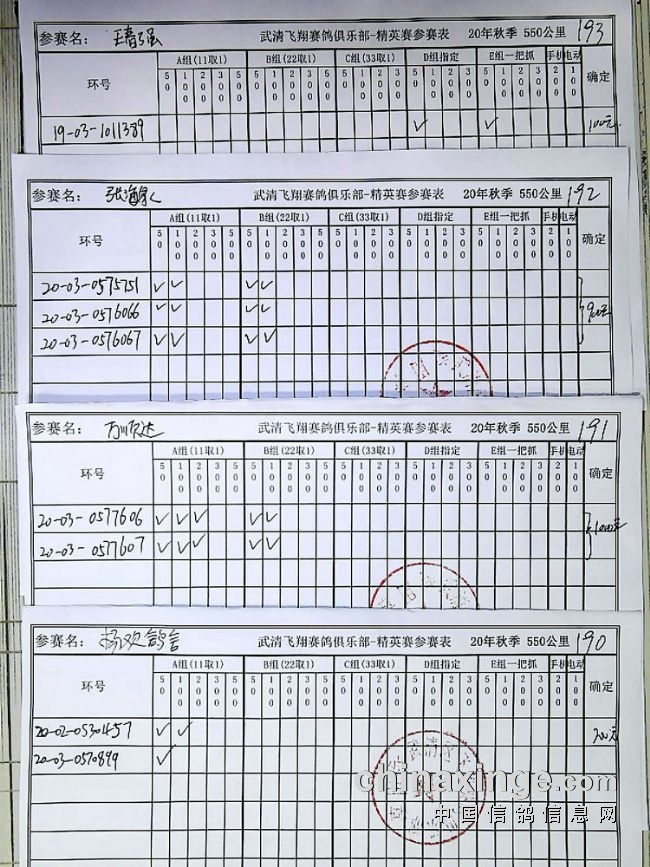 参赛名: 王春强 武清飞翔赛鸽俱乐部-精英赛参赛表 20年秋季 550公里 193
环号 A组(11取1) B组(22取1) C组(33取1) D组指定 E组一把抓 手机 电动 确定
50 100 200 300 500 50 100 200 300 500 50 100 200 300 500 50 100 200 300 50 100 200 300 200 100
19-03-1011389 ✓ ✓ 100元
参赛名: 武清飞翔赛鸽俱乐部-精英赛参赛表 20年秋季 550公里 192
环号 A组(11取1) B组(22取1) C组(33取1) D组指定 E组一把抓 手机 电动 确定
50 100 200 300 500 50 100 200 300 500 50 100 200 300 500 50 100 200 300 50 100 200 300 200 100
20-03-0575751 ✓ ✓ ✓ ✓
20-03-0576066 ✓ ✓ ✓ ✓ 900元
20-03-0576067 ✓ ✓ ✓ ✓
参赛名: 武清飞翔赛鸽俱乐部-精英赛参赛表 20年秋季 550公里 191
环号 A组(11取1) B组(22取1) C组(33取1) D组指定 E组一把抓 手机 电动 确定
50 100 200 300 500 50 100 200 300 500 50 100 200 300 500 50 100 200 300 50 100 200 300 200 100
20-03-0577606 ✓ ✓ ✓ ✓ ✓ 1000元
20-03-0577607 ✓ ✓ ✓ ✓ ✓
参赛名: 杨欢鸽舍 武清飞翔赛鸽俱乐部-精英赛参赛表 20年秋季 550公里 190
环号 A组(11取1) B组(22取1) C组(33取1) D组指定 E组一把抓 手机 电动 确定
50 100 200 300 500 50 100 200 300 500 50 100 200 300 500 50 100 200 300 50 100 200 300 200 100
20-02-0530457 ✓ ✓ 200元
20-03-0570899 ✓
武清区飞
chinaxinge.com
中国信鸽信息网